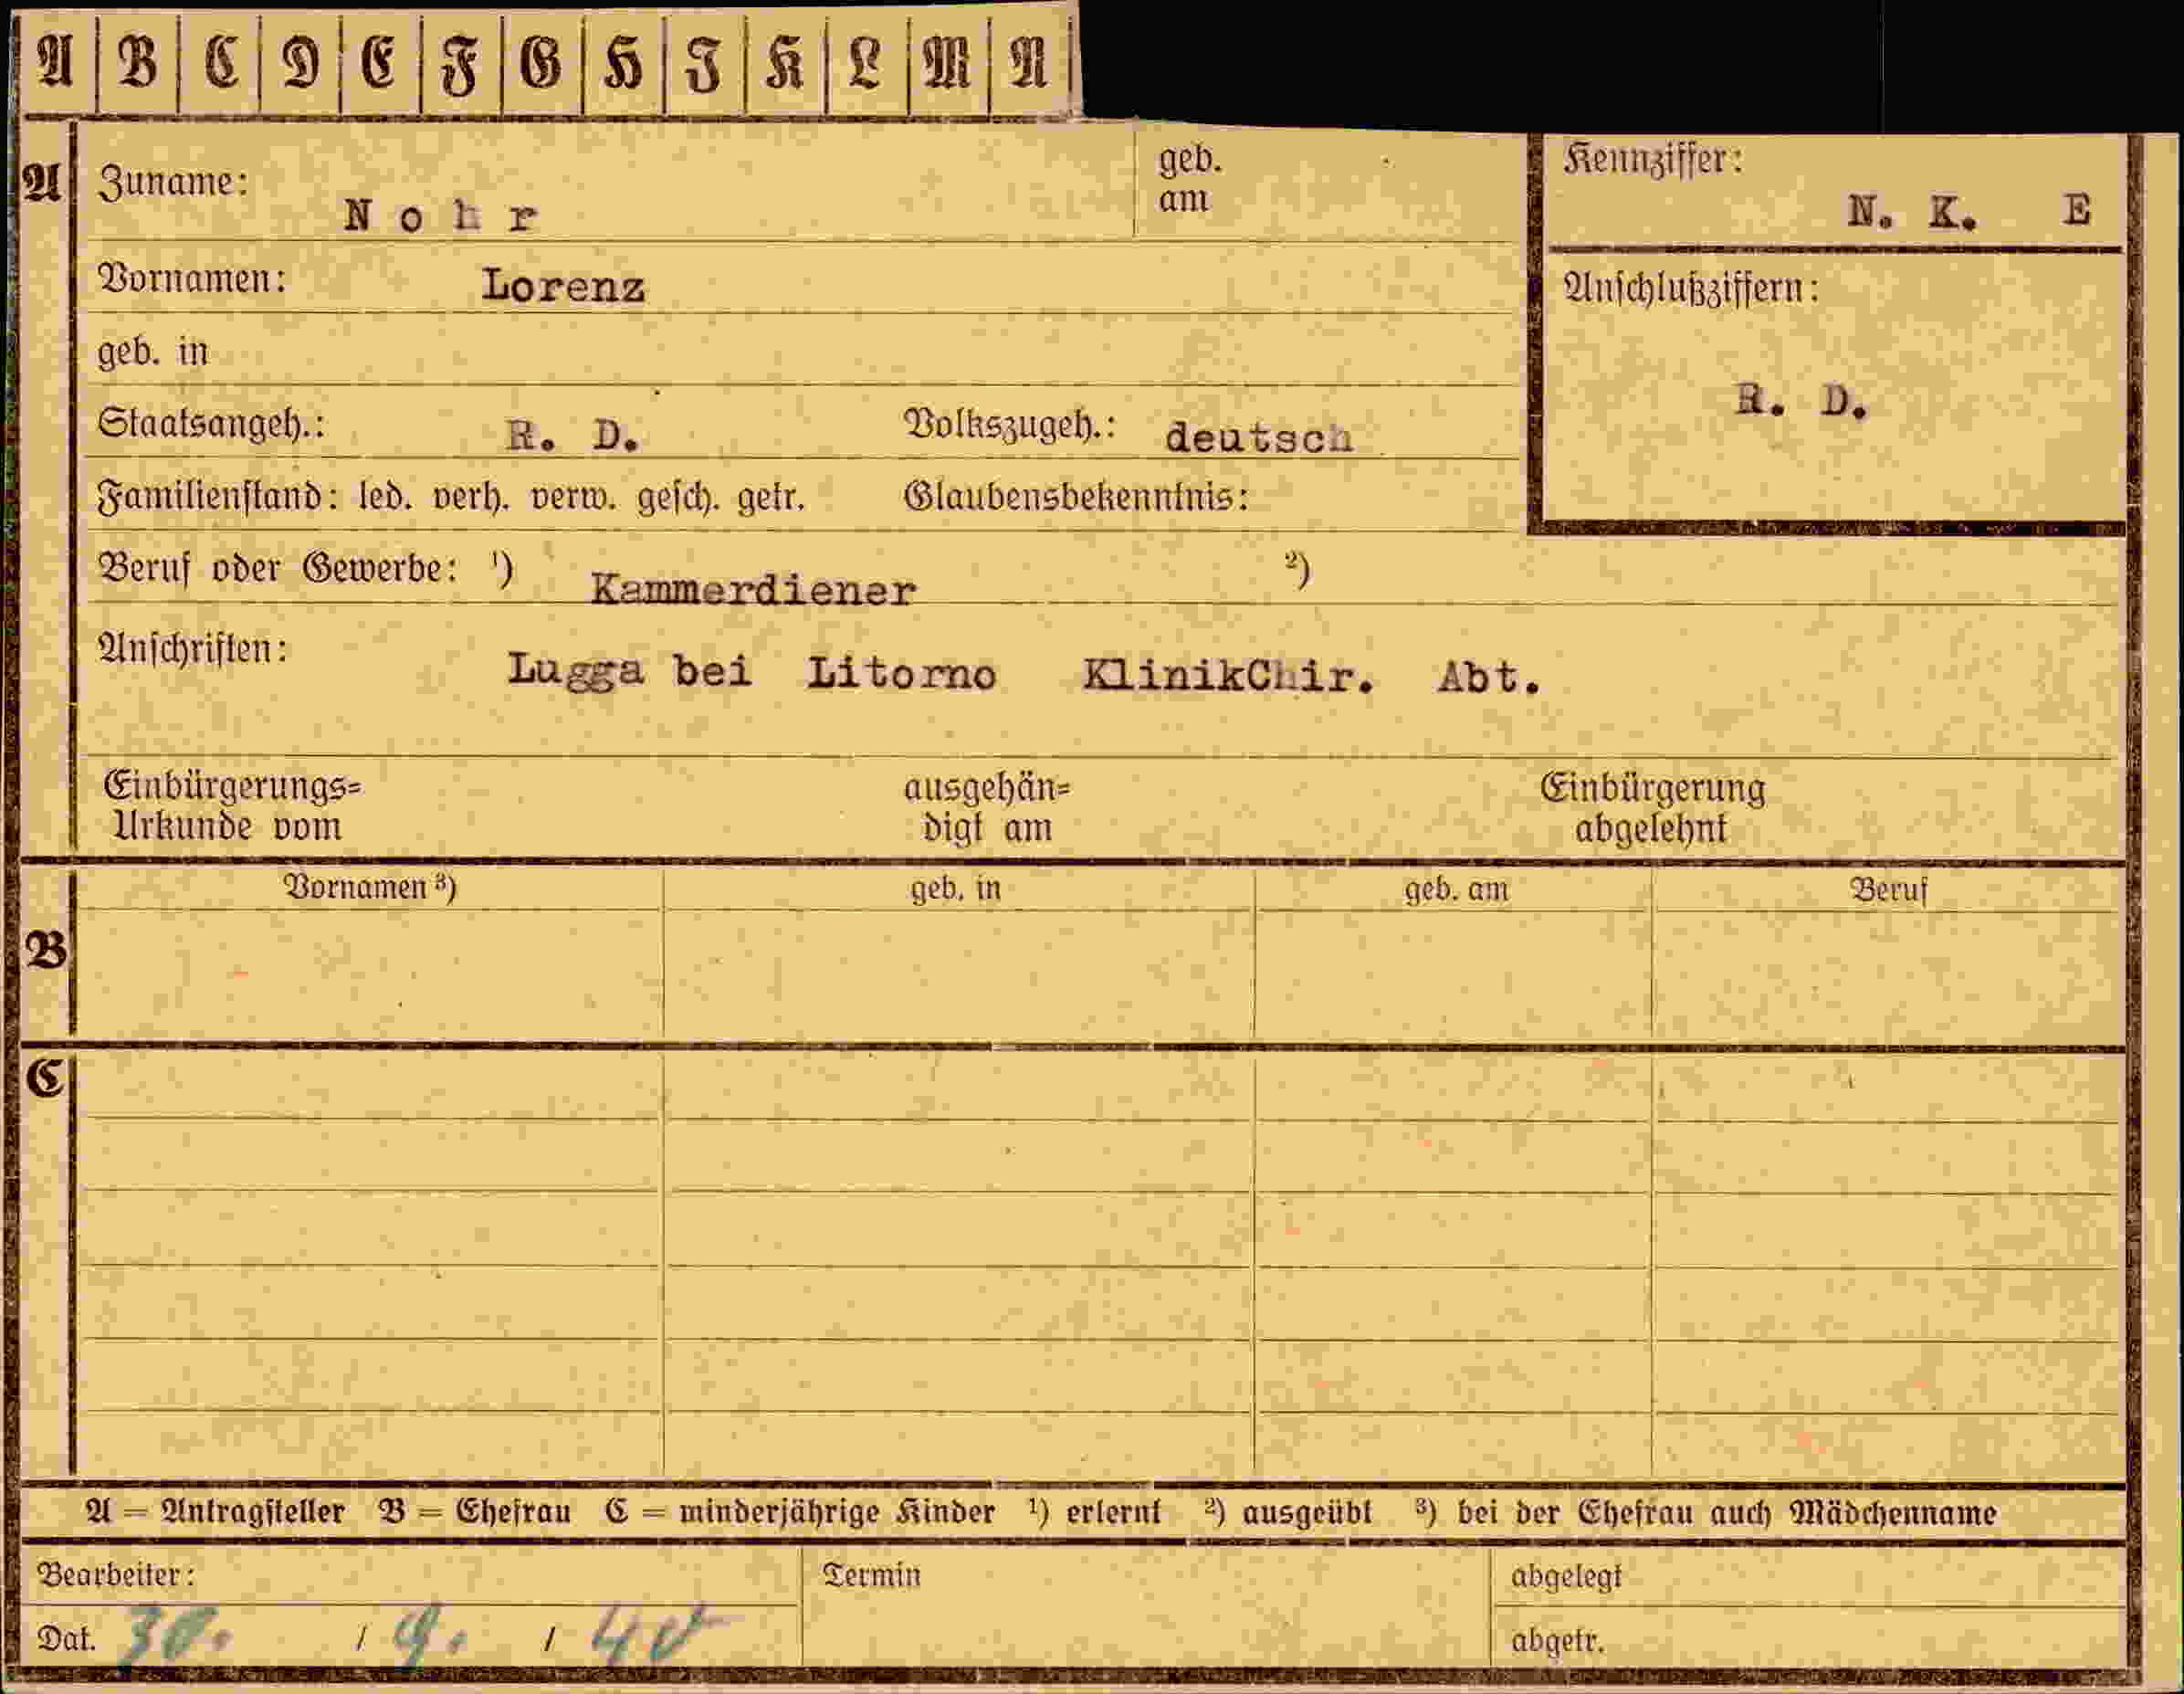 A B C D E F G H I K L M N
A Zuname: Nohr geb. am
Kennziffer: N. K. E
Vornamen: Lorenz
Anschlußziffern:
geb. in
R. D.
Staatsangeh.: R. D. Volkszugeh.: deutsch
Familienstand: led. verh. verw. gesch. getr. Glaubensbekenntnis:
Beruf oder Gewerbe: ¹) Kammerdiener ²)
Anschriften: Lugga bei Litorno KlinikChir. Abt.
Einbürgerungs= ausgehän= Einbürgerung
Urkunde vom digt am abgelehnt
Vornamen ³) geb. in geb. am Beruf
B
C
A = Antragsteller B = Ehefrau C = minderjährige Kinder ¹) erlernt ²) ausgeübt ³) bei der Ehefrau auch Mädchenname
Bearbeiter: Termin abgelegt
Dat. 30. / 9. / 40 abgetr.